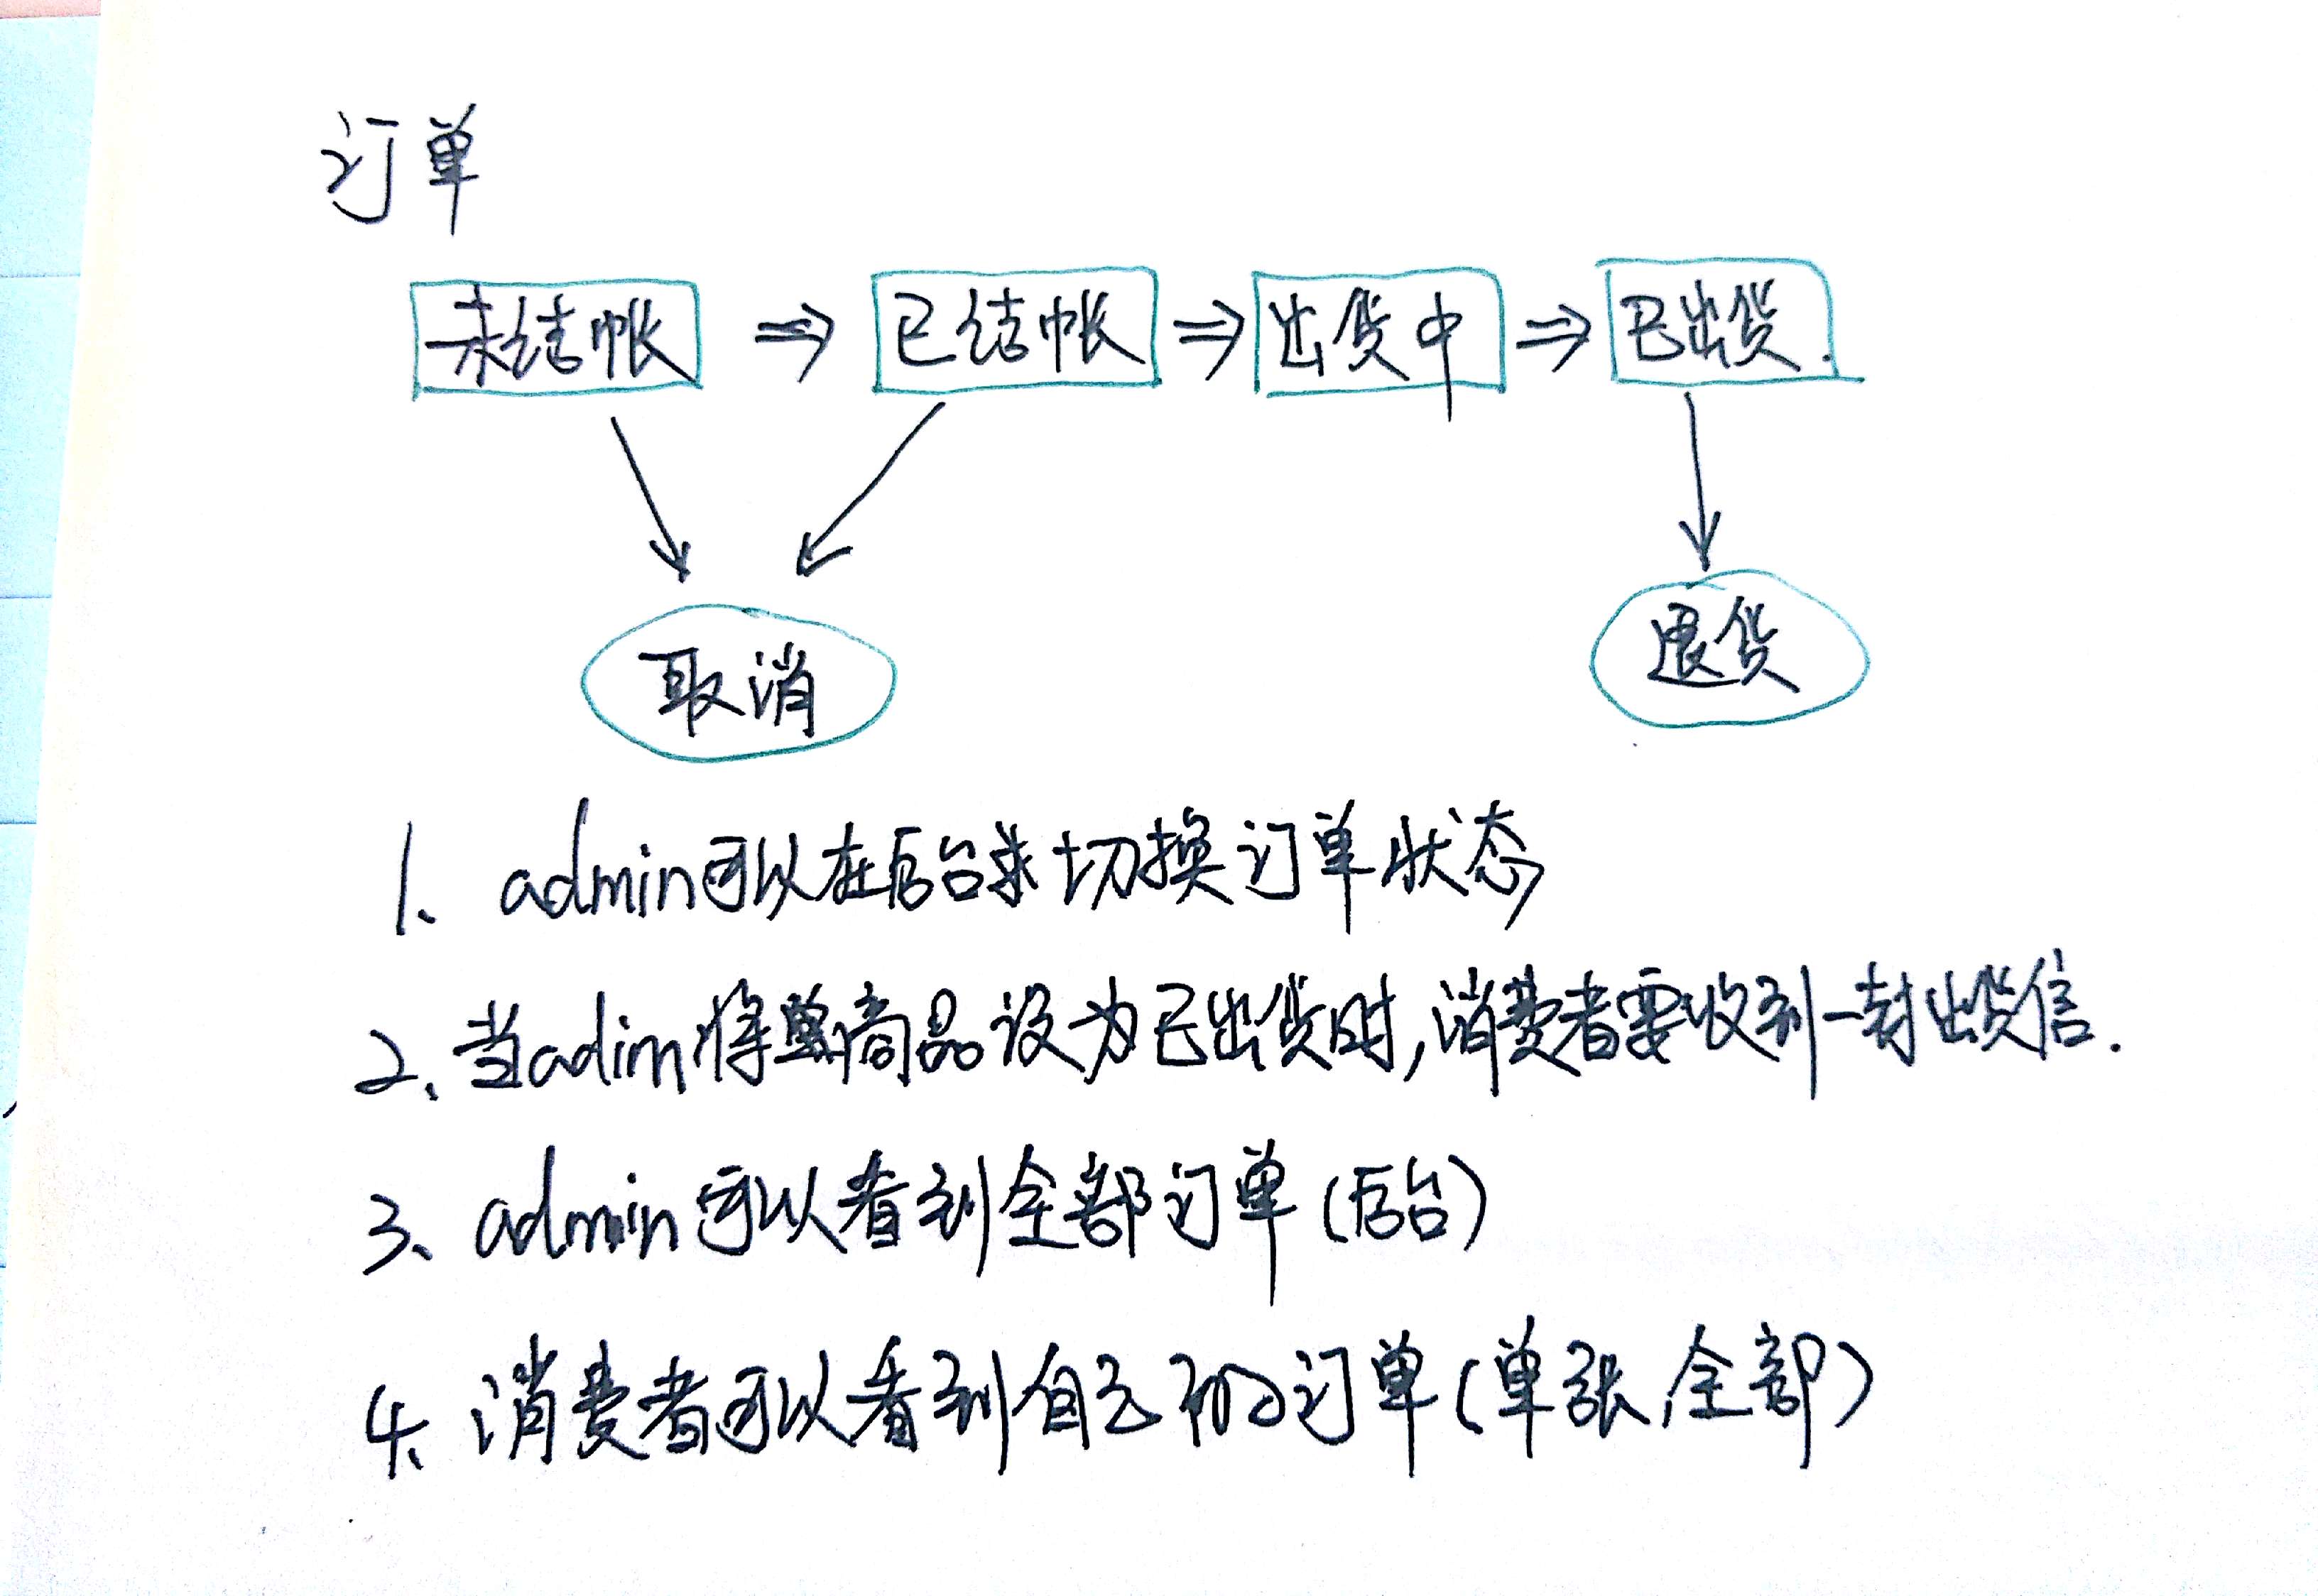 订单
未结帐 ⇒ 已结帐 ⇒ 出货中 ⇒ 已出货.
取消 退货
1、admin可以在后台来切换订单状态
2、当adim将商品设为已出货时,消费者需要收到一封出货信.
3、admin可以看到全部订单(后台)
4、消费者可以看到自己的订单(单张,全部)